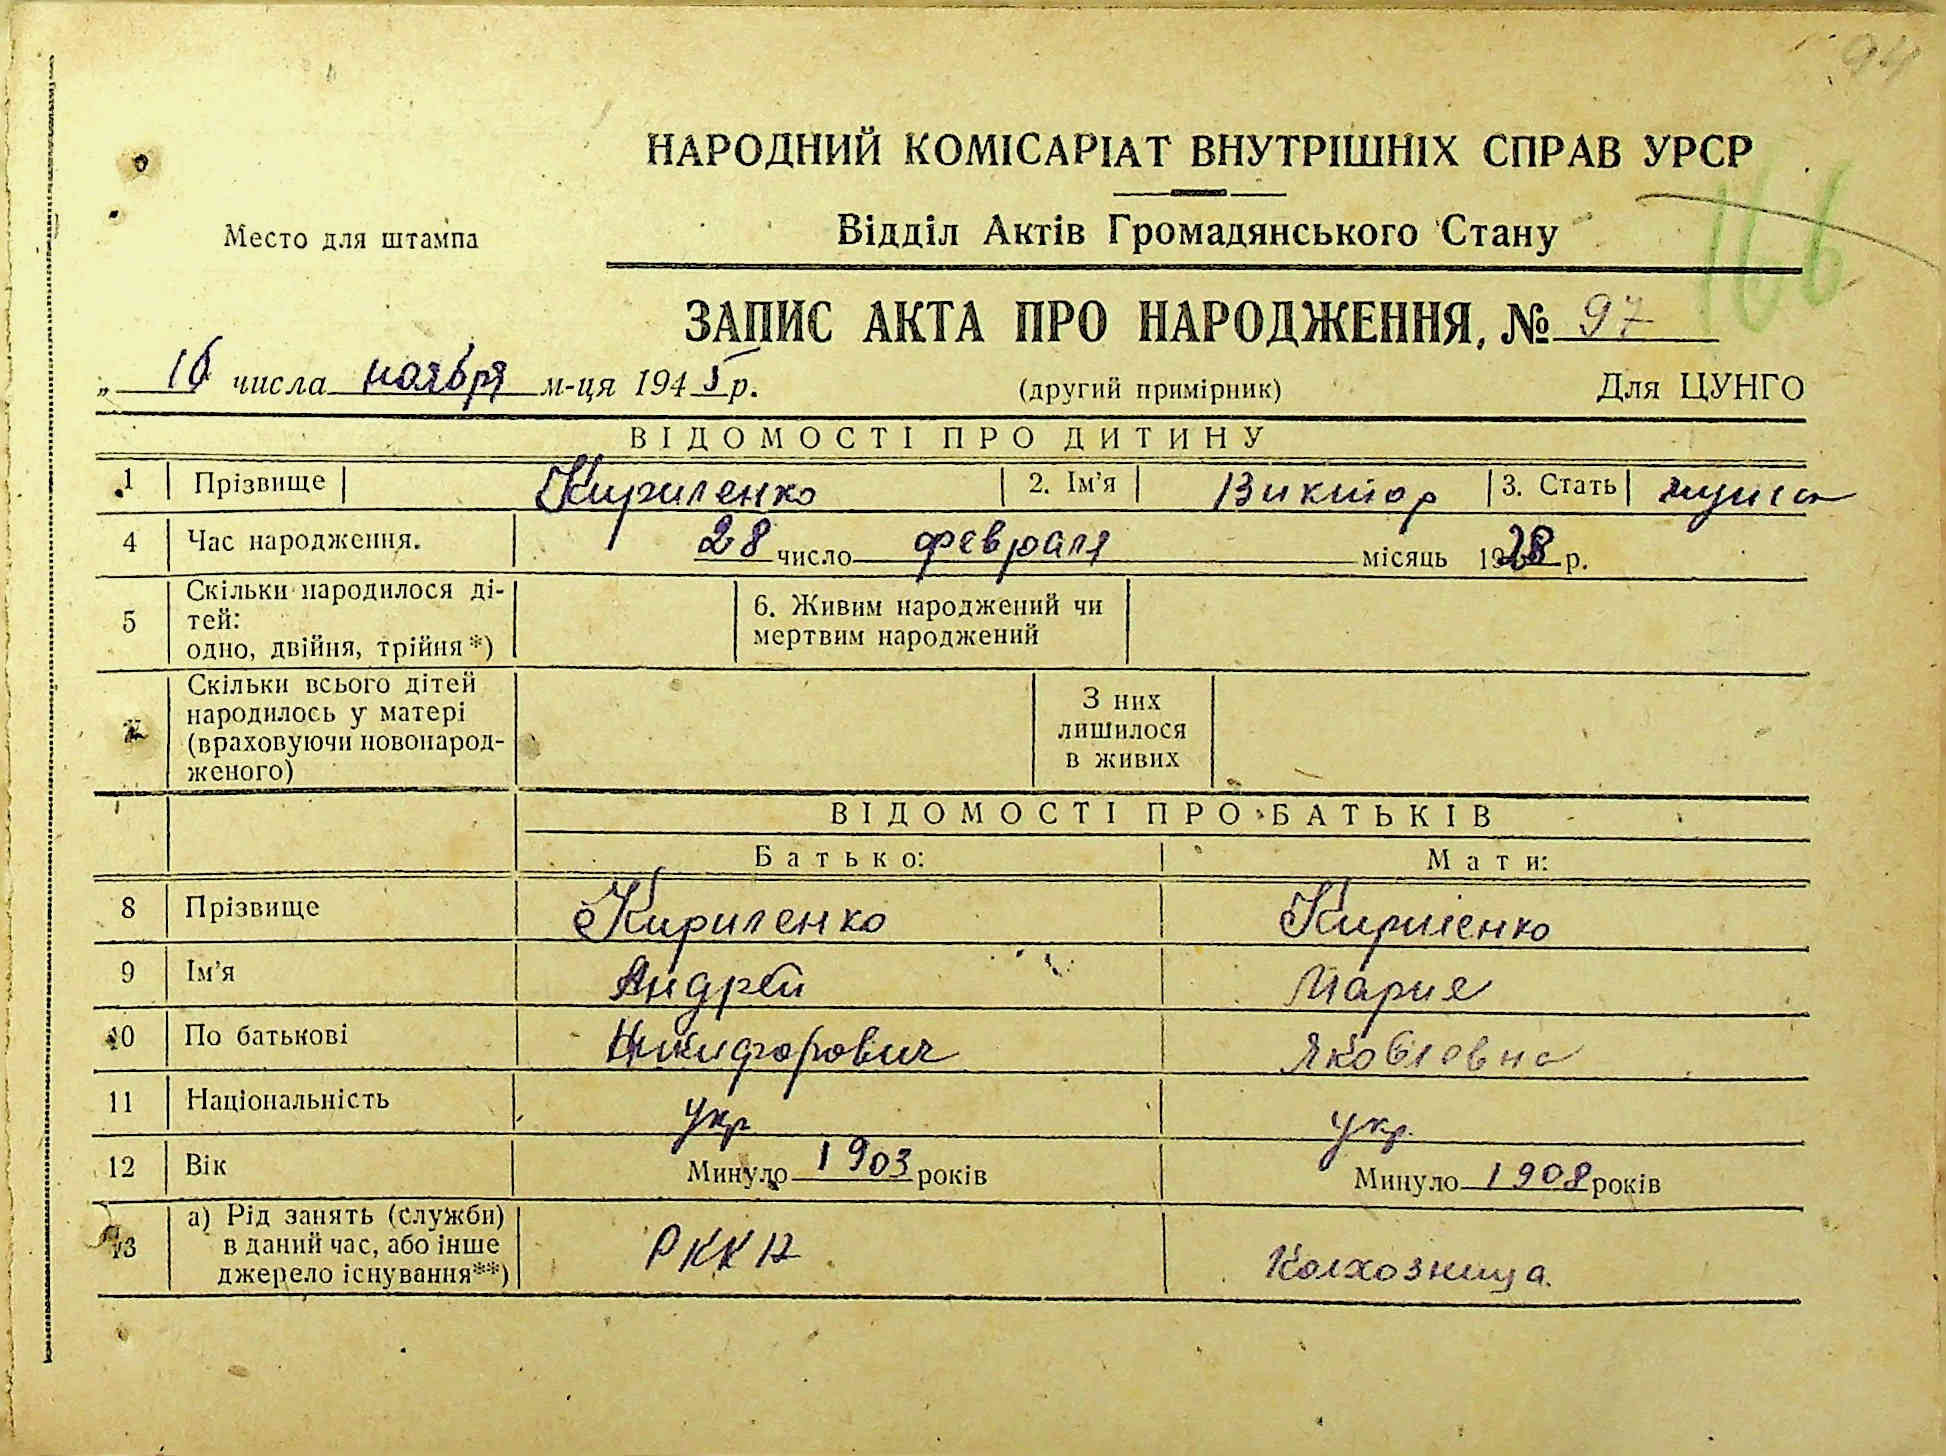 94
НАРОДНИЙ КОМІСАРІАТ ВНУТРІШНІХ СПРАВ УРСР
166
Место для штампа
Відділ Актів Громадянського Стану
ЗАПИС АКТА ПРО НАРОДЖЕННЯ, № 97
„ 16 числа ноября м-ця 1945 р. (другий примірник) Для ЦУНГО
ВІДОМОСТІ ПРО ДИТИНУ
1 Прізвище Кириленко 2. Ім'я Виктор 3. Стать
4 Час народження. 28 число февраля місяць 1928 р.
5 Скільки народилося ді-
тей:
одно, двійня, трійня*)
6. Живим народжений чи
мертвим народжений
Скільки всього дітей
народилось у матері
(враховуючи новонарод-
женого)
З них
лишилося
в живих
ВІДОМОСТІ ПРО БАТЬКІВ
Батько: Мати:
8 Прізвище Кириленко Кириленко
9 Ім'я Андрей Мария
10 По батькові Никифорович Яковлевна
11 Національність укр укр.
12 Вік Минуло 1903 років Минуло 1908 років
13 а) Рід занять (служби)
в даний час, або інше
джерело існування**)
РККА Колхозница.